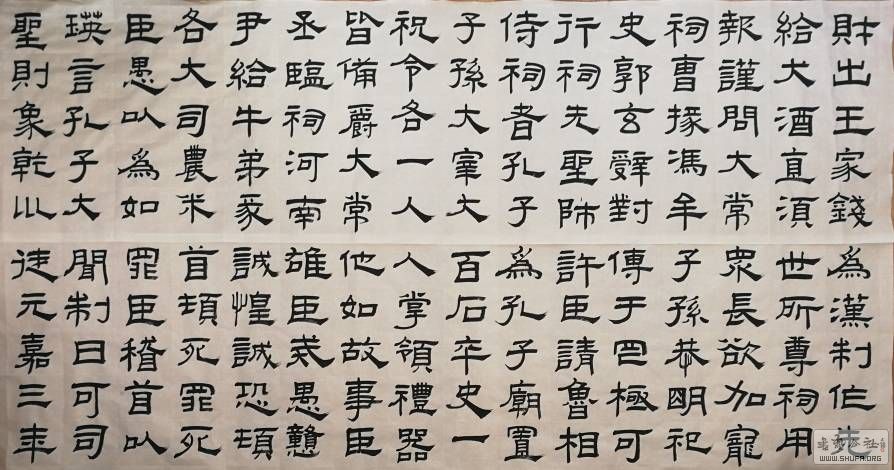 財出王家錢
給犬酒直須
報謹問大常
祠曹掾馮牟
史郭玄辭對
行祠先聖師
侍祠者孔子
子孫大宰大
祝令各一人
皆備爵大常
丞臨祠河南
尹給牛弟豕
各大司農米
臣愚以為如
瑛言孔子大
聖則象乾巛
為漢制作先
世所尊祠用
眾長欲加寵
子孫恭明祀
傳于罔極可
許臣請魯相
為孔子廟置
百石卒史一
人掌領禮器
他如故事臣
雄臣戒愚戇
誠惶誠恐頓
首頓死罪死
罪臣稽首以
聞制曰可司
徒元嘉三年
WWW.SHUFA.ORG